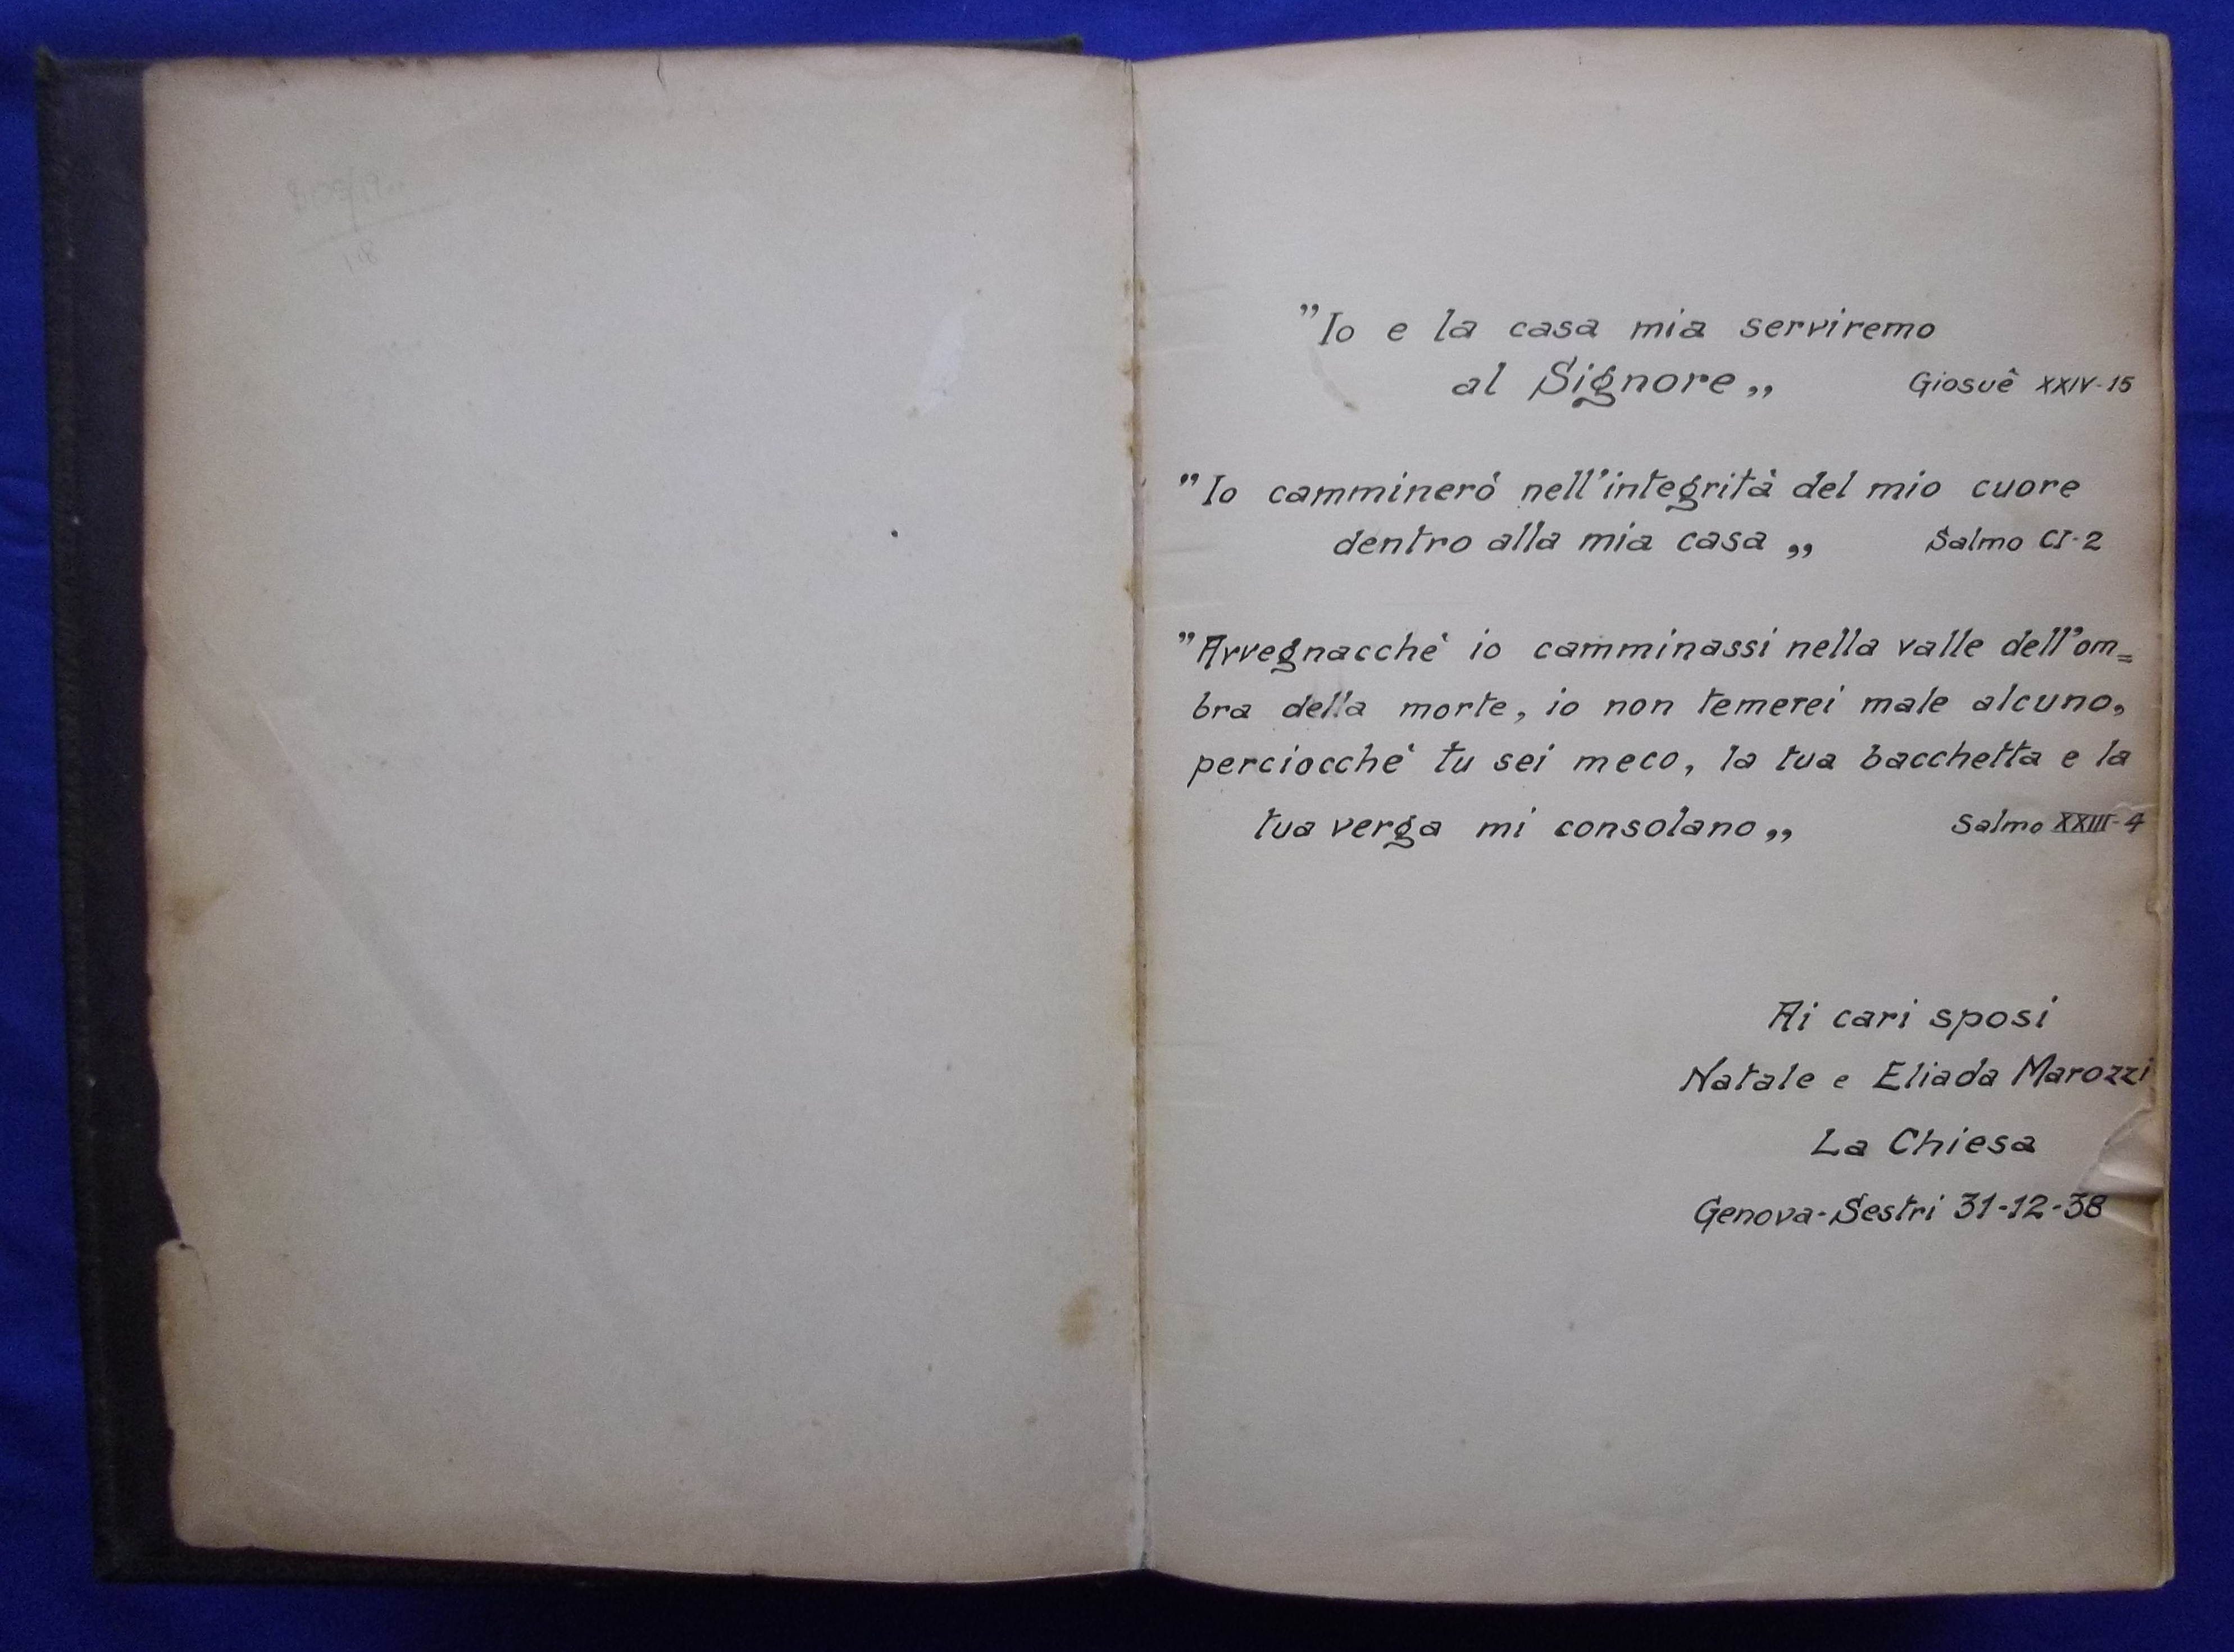 ”Io e la casa mia serviremo
al Signore„ Giosuè XXIV-15
”Io camminerò nell'integrità del mio cuore
dentro alla mia casa„ Salmo CI-2
”Avvegnacchè io camminassi nella valle dell'om=
bra della morte, io non temerei male alcuno,
perciocchè tu sei meco, la tua bacchetta e la
tua verga mi consolano„ Salmo XXIII-4
Ai cari sposi
Natale e Eliada Marozzi
La Chiesa
Genova-Sestri 31-12-38